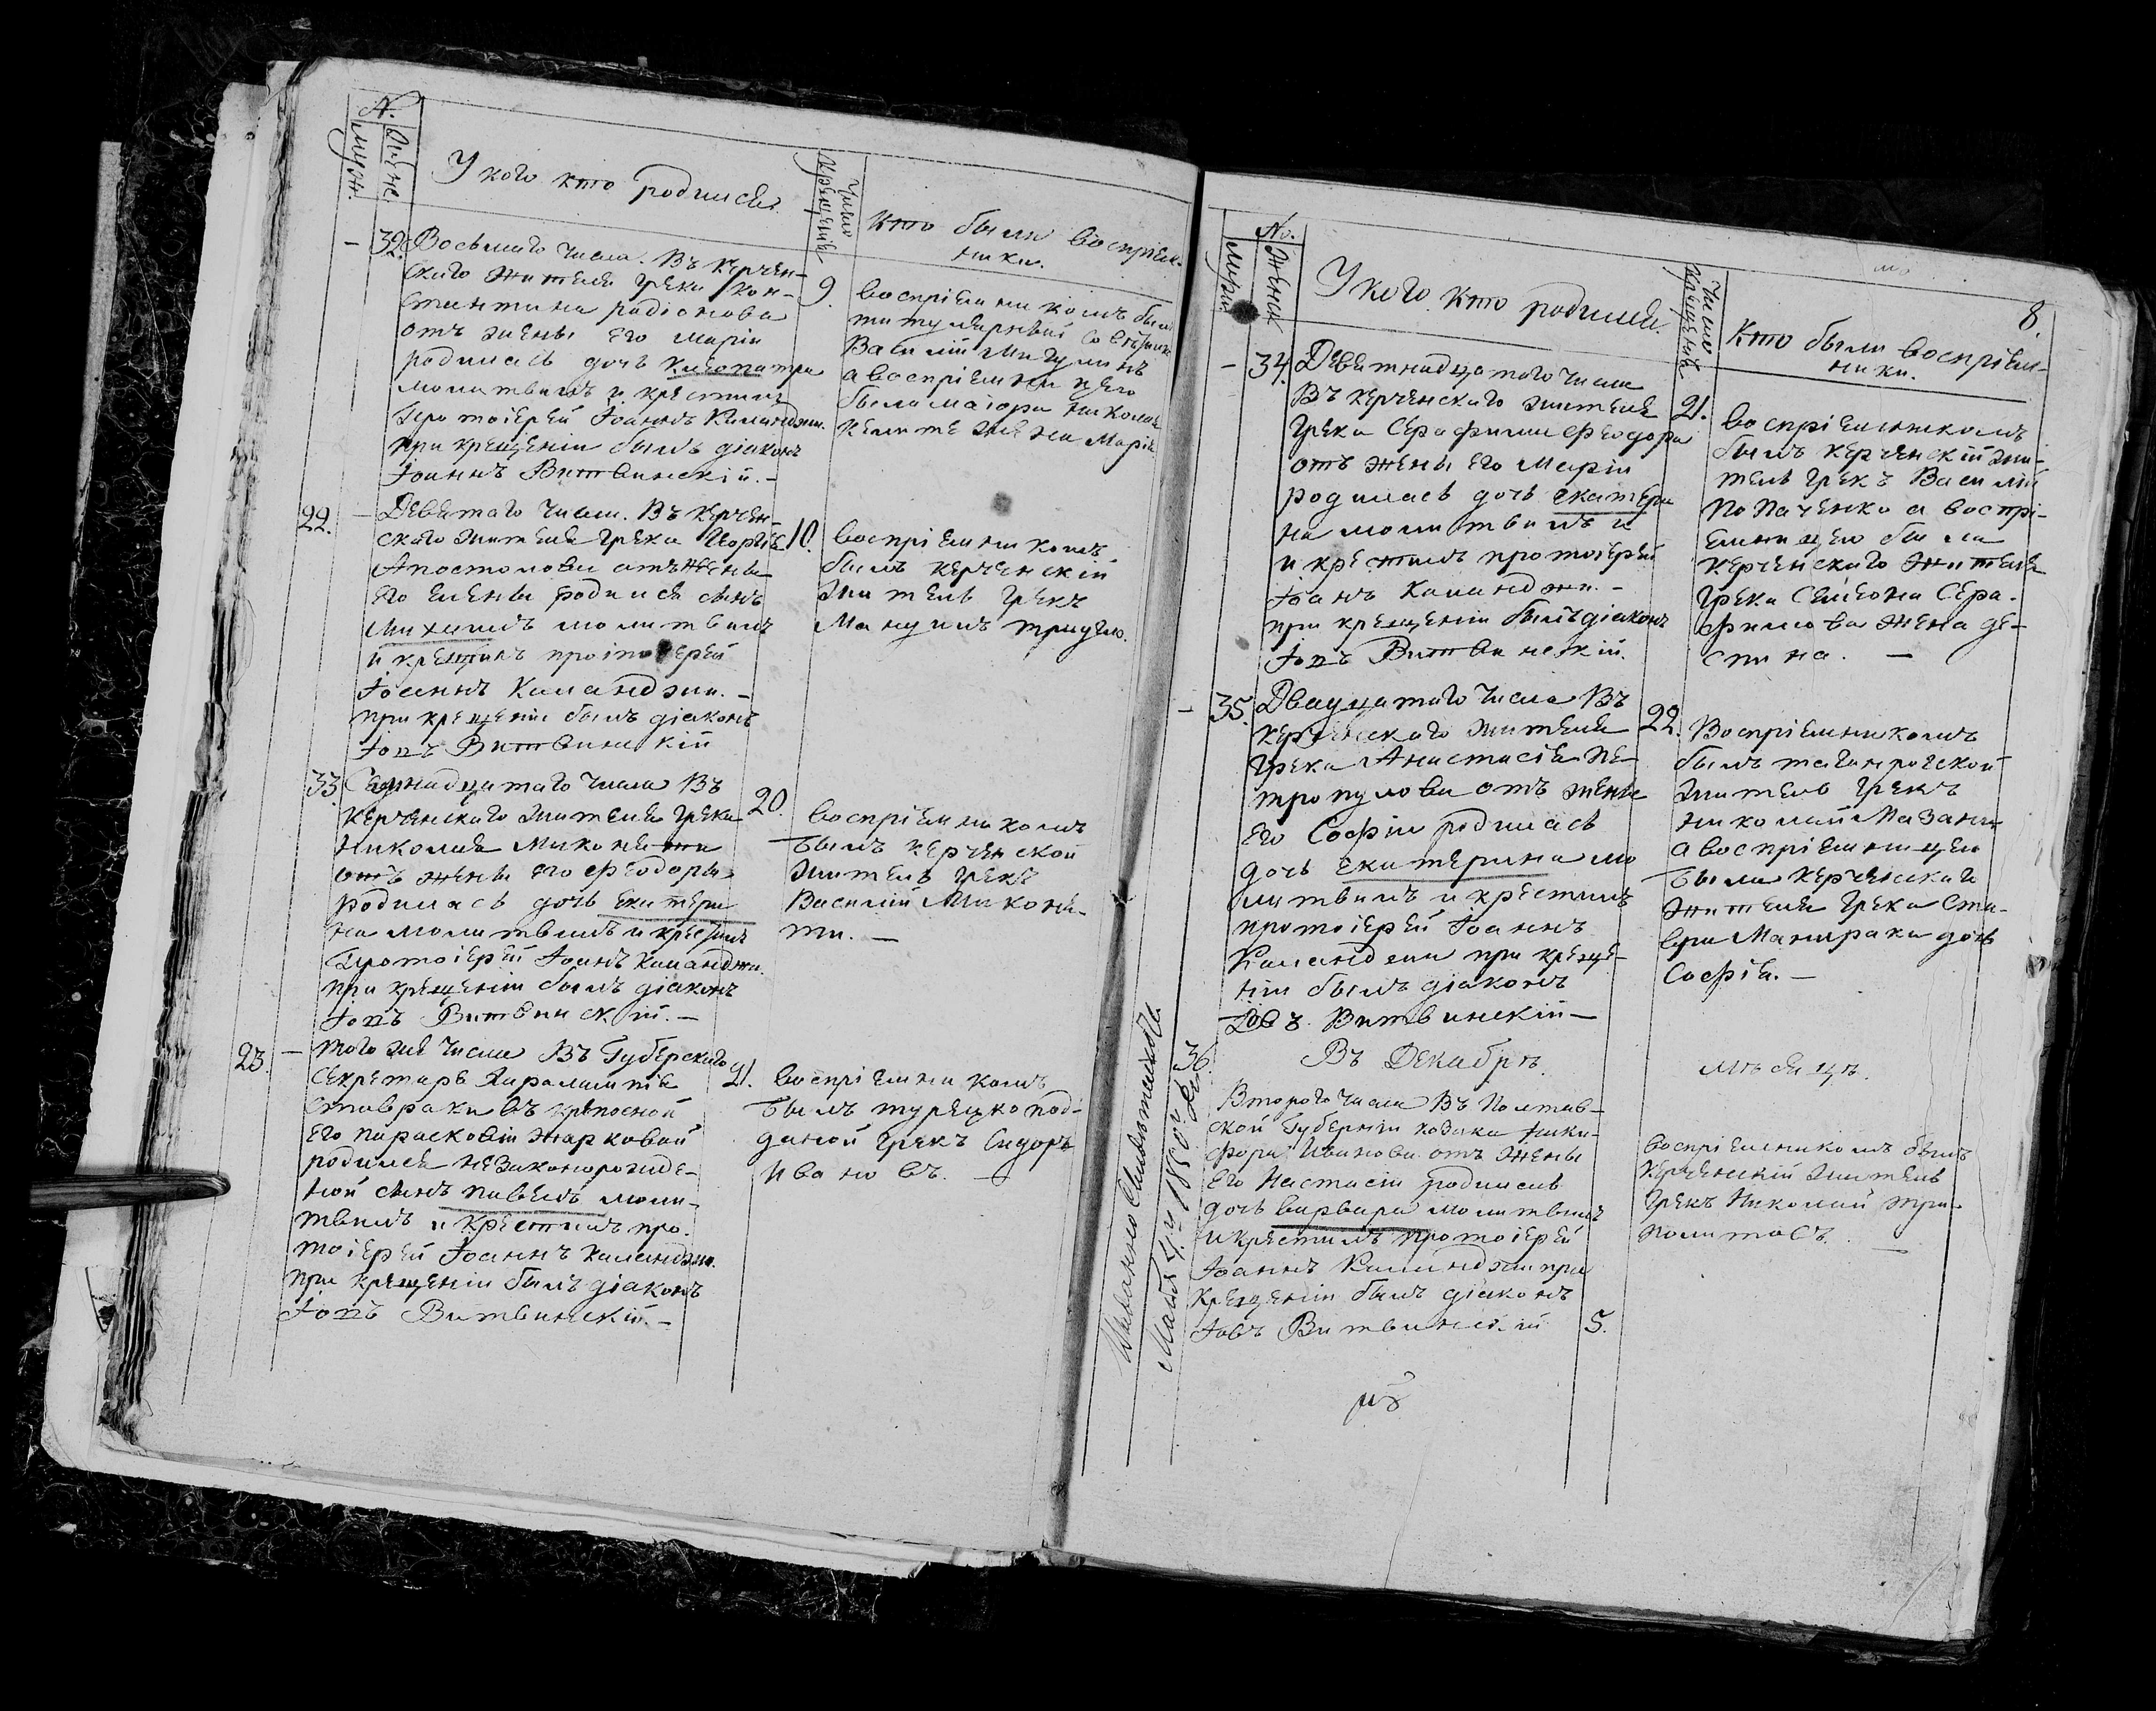 N.
муж.
жене.
У кого кто родился
Число крещенія
Кто были воспріем-
ники.
- 32. Восьмаго числа. Въ керчен-
скаго жителя грека Кон-
стантина радіонова
отъ жены его маріи
родилась дочь Клеопатра
молитвилъ и крестилъ
Протоіерей Іоаннъ Каланджи.
при крещеніи былъ діаконъ
Іоаннъ Витвинскій. -
9. воспріемникомъ былъ
титулярный совѣтникъ
Василій Мигулинъ
а воспріемницею
была маіора николая
жена Марія
22. - Девятаго числа. Въ керчен-
скаго жителя грека Георгія
Апостолова отъ жены
его елены родился сынъ
Михаилъ молитвилъ
и крестилъ протоіерей
Іоаннъ Каланджи. -
при крещеніи былъ діаконъ
Іовъ Витвинскій
10. воспріемникомъ
былъ керченскій
житель грекъ
Мануилъ
33. Седмнадцатаго числа Въ
керченскаго жителя грека
николая Микони
отъ жены его феодоры
родилась дочь екатери
на молитвилъ и крестилъ
Протоіерей Іоаннъ Каланджи.
при крещеніи былъ діаконъ
Іовъ Витвинскій. -
20. воспріемникомъ
былъ керченской
житель грекъ
Василій Микони-
ти. -
23. - того же числа Въ Губерскаго
секретаря Харалампія
ставраки въ крѣпосной
его парасковіи жарковой
родился незаконорожде-
ной сынъ павелъ моли-
твилъ и крестилъ про-
тоіерей Іоаннъ каланджи.
при крещеніи былъ діаконъ
Іовъ Витвинскій. -
21. воспріемникомъ
былъ турецкопод-
даной грекъ Сидоръ
Ивановъ. -
8
No.
мужи.
женск
У кого кто родился.
Число крещенія
Кто были воспріем-
ники.
- 34. Девятнадцатаго числа
Въ керченскаго жителя
грека Серафима феодора
отъ жены его Маріи
родилась дочь екатери
на молитвилъ и
и крестилъ протоіерей
Іоанъ Каланджи. -
при крещеніи былъ діаконъ
Іовъ Витвинскій.
21. воспріемникомъ
былъ керченскій жи-
тель грекъ Василій
Попаченко а воспрі-
емницею была
керченскаго жителя
грека Семеона Сера-
фимова жена де-
спина. -
- 35. Двадцатаго числа Въ
керченскаго жителя
грека Анастасія Пе-
тропулова отъ жены
его Софіи родилась
дочь екатерина мо
литвилъ и крестилъ
протоіерей Іоаннъ
Каланджи при креще-
ніи былъ діаконъ
Іовъ. Витвинскій -
22. Воспріемникомъ
былъ таганрогской
житель грекъ
николай
а воспріемницею
была керченскаго
жителя грека Ста-
вра дочь
Софія. -
Въ Декабрѣ. мѣсяцѣ.
36. Втораго числа Въ Полтав-
ской Губерніи козака ники-
фора Иванова отъ жены
его Настасіи родилась
дочь варвара молитвилъ
и крестилъ протоіерей
Іоаннъ Каланджи при
крещеніи былъ діаконъ
Іовъ Витвинскій
5. воспріемникомъ былъ
керченскій житель
грекъ Николай три-
политовъ. -
Маія 4го 1850го